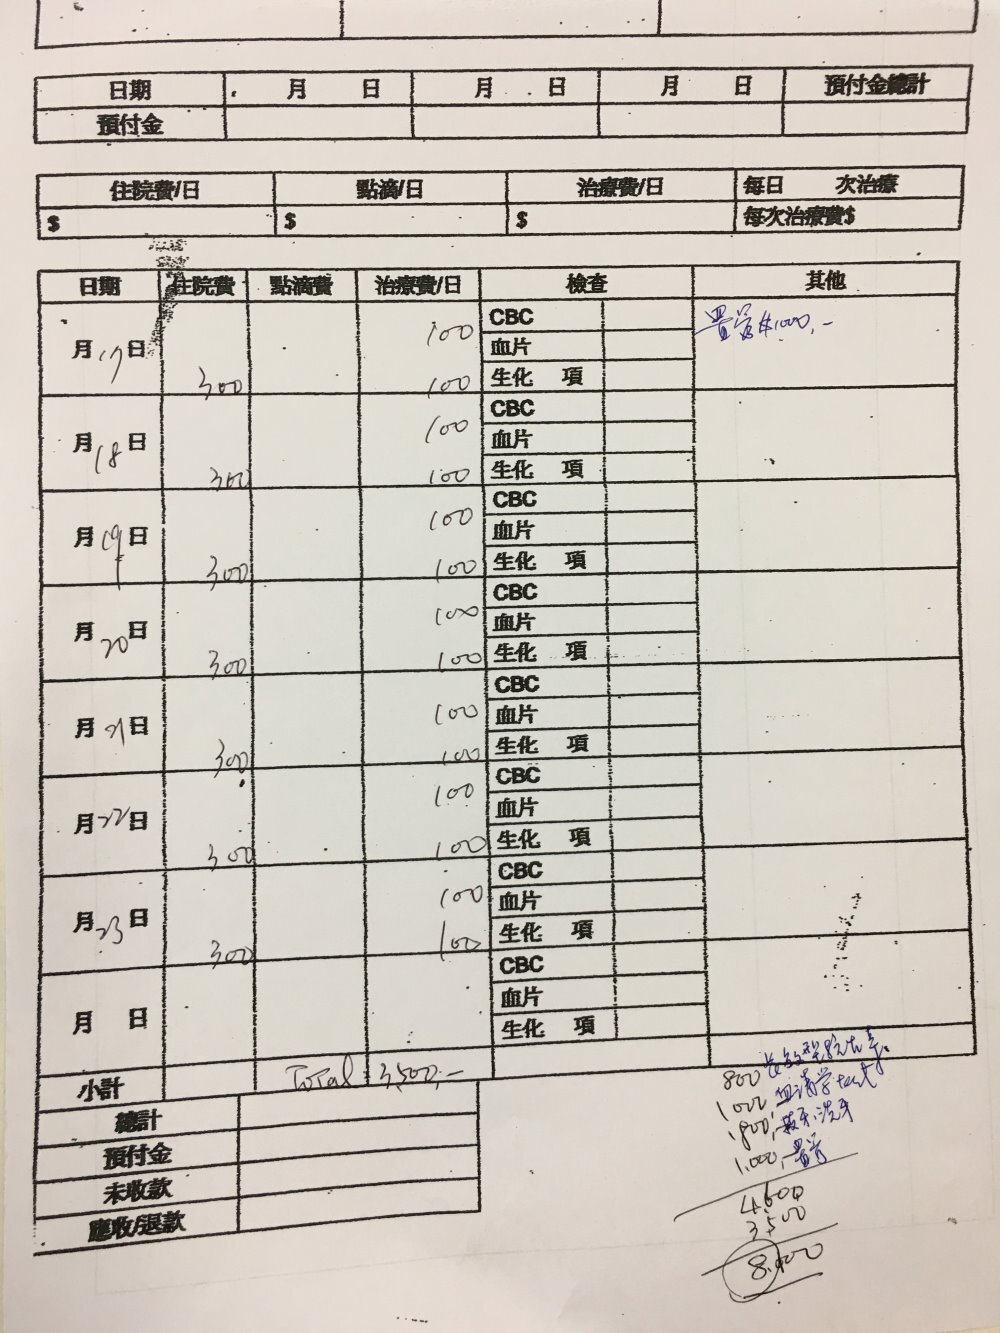 日期 月 日 月 日 月 日 預付金總計
預付金
住院費/日 點滴/日 治療費/日 每日 次治療
$ $ $ 每次治療費$
日期 住院費 點滴費 治療費/日 檢查 其他
月17日 300 100 CBC 置管$1000,-
血片
100 生化 項
月18日 300 100 CBC
血片
100 生化 項
月19日 300 100 CBC
血片
100 生化 項
月20日 300 100 CBC
血片
100 生化 項
月21日 300 100 CBC
血片
100 生化 項
月22日 300 100 CBC
血片
100 生化 項
月23日 300 100 CBC
血片
100 生化 項
月 日 CBC
血片
生化 項
小計 Total 3,500,-
總計
預付金
未收款
應收/退款
800 長效型
1000 血清學test
1,800,- 洗牙
1,000,- 置管
4,600
3,500
8,100